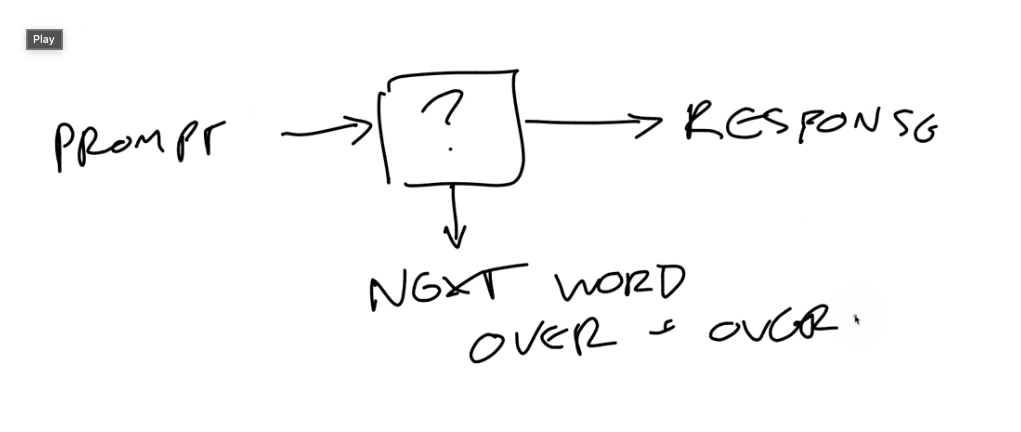 Play
PROMPT → ? → RESPONSE
↓
NEXT WORD
OVER + OVER